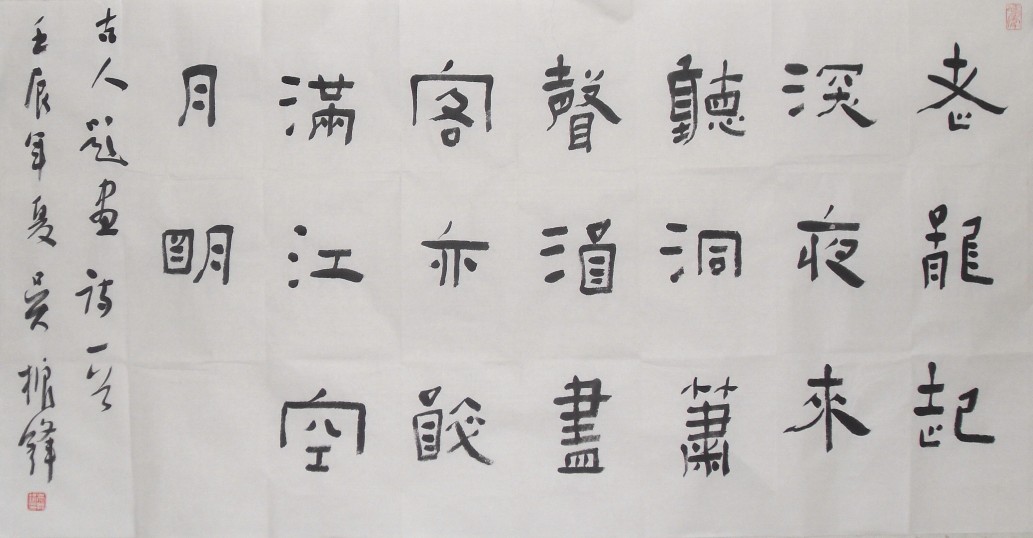 老龍起
深夜來
聽洞簫
聲酒盡
客亦醉
滿江空
月明
古人題畫詩一首
壬辰年夏吳振鋒